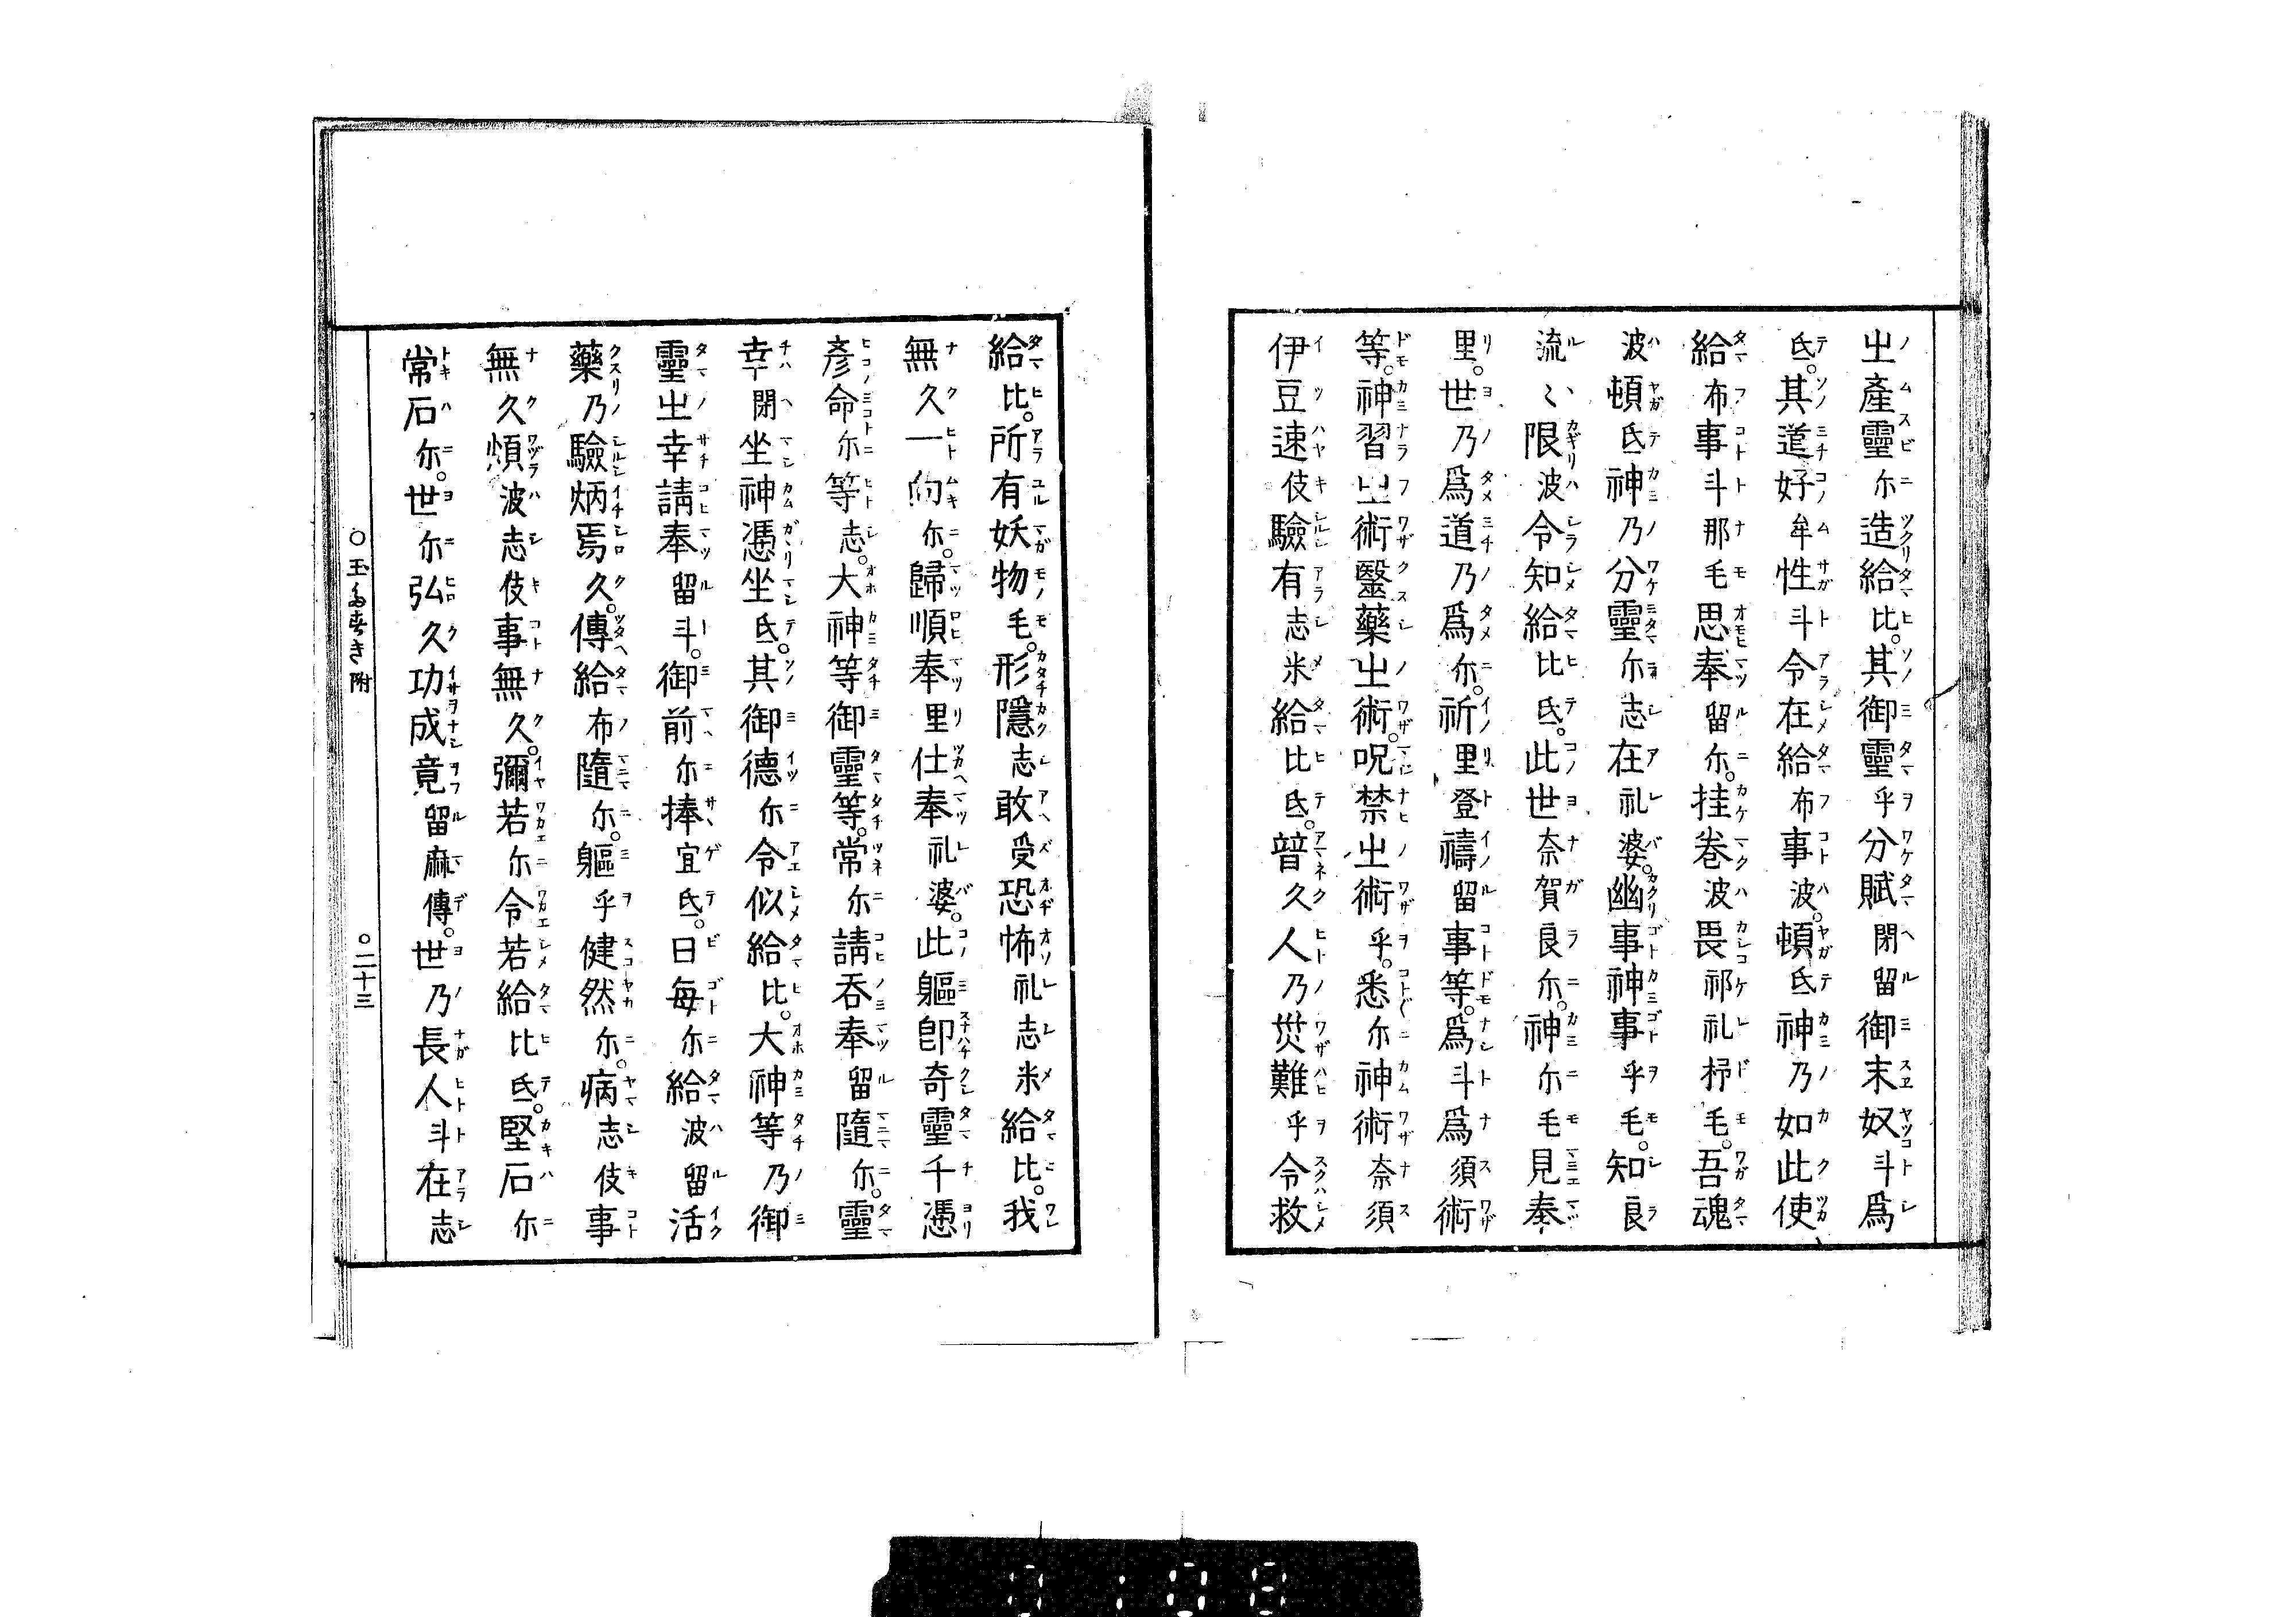 出產靈尓造給比。其御靈乎分賦閇留御末奴斗爲
氐。其道好牟性斗令在給布事波。頓氐神乃如此使
給布事斗那毛思奉留尓。挂卷波畏祁礼杼毛。吾魂
波頓氐神乃分靈尓志在礼婆。幽事神事乎毛。知良
流〻限波令知給比氐。此世奈賀良尓。神尓毛見奉
里。世乃爲道乃爲尓。祈里登禱留事等。爲斗爲須術
等。神習出術毉藥出術。呪禁出術乎。悉尓神術奈須
伊豆速伎驗有志米給比氐。普久人乃災難乎令救
給比。所有妖物毛。形隱志敢受恐怖礼志米給比。我
無久一向尓。歸順奉里仕奉礼婆。此軀卽奇靈千憑
彥命尓等志。大神等御靈等。常尓請吞奉留隨尓。靈
幸閇坐神憑坐氐。其御德尓令似給比。大神等乃御
靈出幸請奉留斗。御前尓捧宜氐。日每尓給波留活
藥乃驗炳焉久。傳給布隨尓。軀乎健然尓。病志伎事
無久煩波志伎事無久。彌若尓令若給比氐。堅石尓
常石尓。世尓弘久功成竟留麻傳。世乃長人斗在志
○玉多春き附
○二十三